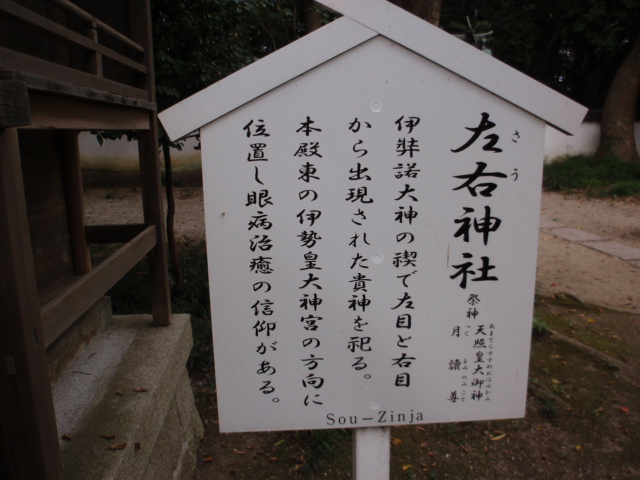 左右神社
さう
祭神
天照皇大御神
あまてらすすめおほみかみ
月讀尊
つくよみのみこと
伊弉諾大神の禊で左目と右目
から出現された貴神を祀る。
本殿東の伊勢皇大神宮の方向に
位置し眼病治癒の信仰がある。
Sou-Zinja